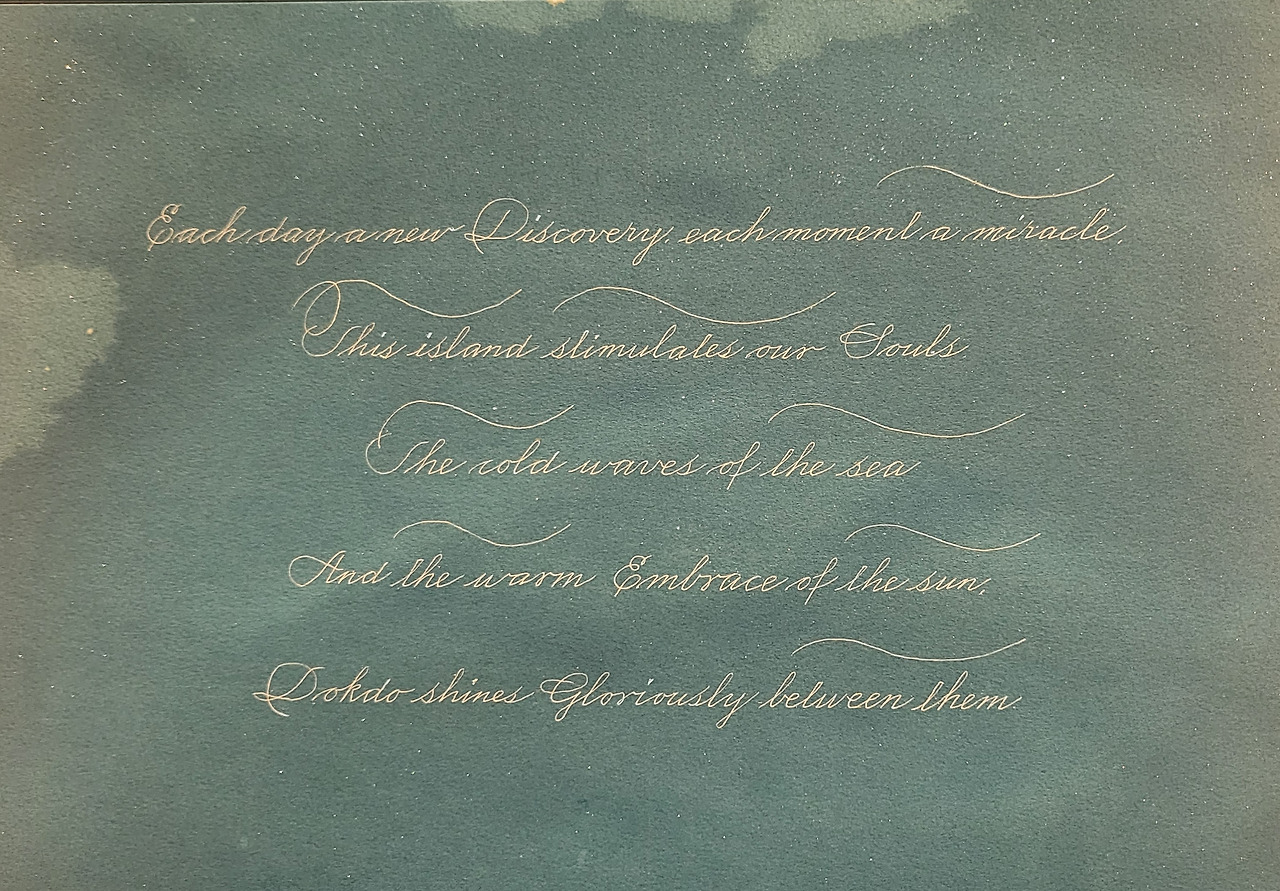 Each day a new Discovery, each moment a miracle,
This island stimulates our Souls
The cold waves of the sea
And the warm Embrace of the sun,
Dokdo shines Gloriously between them.